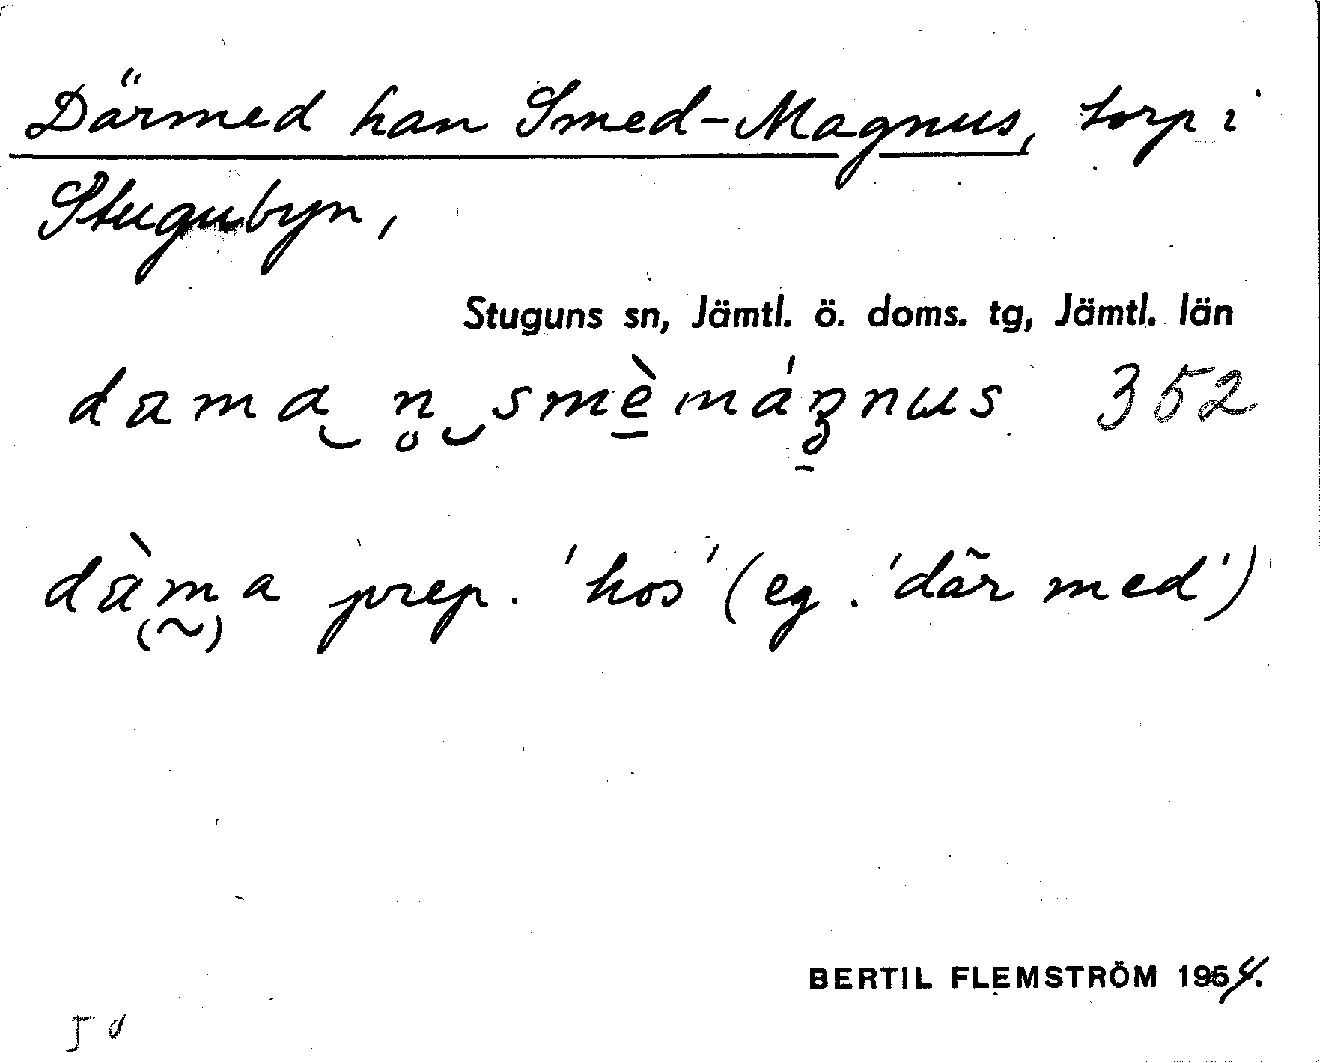 Därmed han Smed-Magnus, torp i
Stugubyn,
Stuguns sn, Jämtl. ö. doms. tg, Jämtl. län
dama‿n̥‿smè̱máŋnus 352
dàma prep. 'hos' (eg. 'där med')
(~)
BERTIL FLEMSTRÖM 1954.